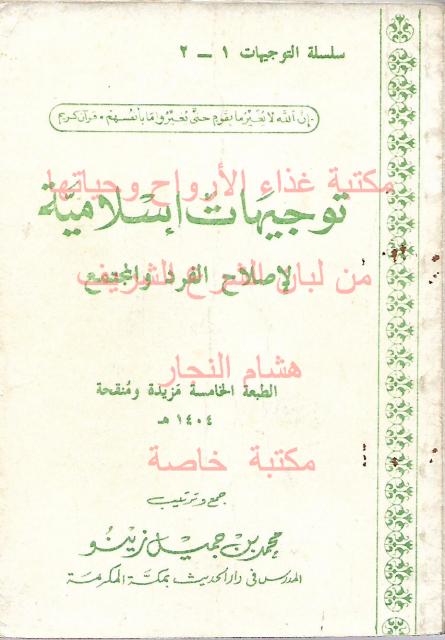 سلسلة التوجيهات ١ - ٢
إن الله لا يغير ما بقوم حتى يغيروا ما بأنفسهم . قرآن كريم
مكتبة غذاء الأرواح وحياتها
توجيهات إسلامية
من لبان الشرع الشريف
لإصلاح الفرد والمجتمع
هشام النجار
الطبعة الخامسة مزيدة ومنقحة
١٤٠٤ هـ
مكتبة خاصة
جمع وترتيب
محمد بن جميل زينو
المدرس في دار الحديث بمكة المكرمة